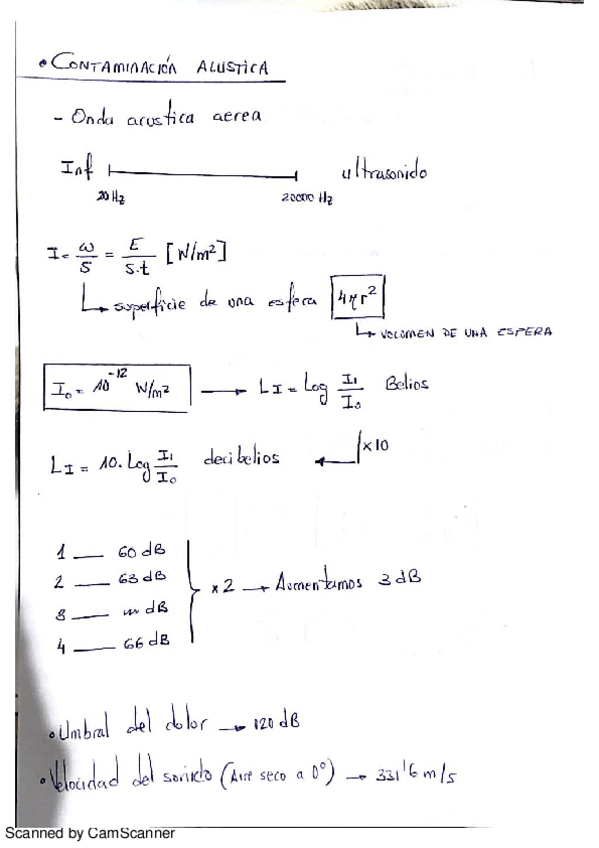 • CONTAMINACIÓN ACUSTICA
- Onda acustica aerea
Inf ultrasonido
20 Hz 20000 Hz
I = ω/S = E/S.t [W/m²]
superficie de una esfera 4πr²
VOLUMEN DE UNA ESFERA
I₀ = 10⁻¹² W/m² → L_I = Log I₁/I₀ Belios
L_I = 10. Log I₁/I₀ decibelios ← x10
1 — 60 dB
2 — 63 dB
x2 → Aumentamos 3 dB
3 — dB
4 — 66 dB
• Umbral del dolor → 120 dB
• Velocidad del sonido (Aire seco a 0°) → 331'6 m/s
Scanned by CamScanner